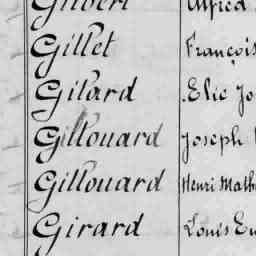 Gilbert Alfred
Gillet François
Gilard Elie Jo
Gillouard Joseph
Gillouard Henri Math
Girard Louis Eu